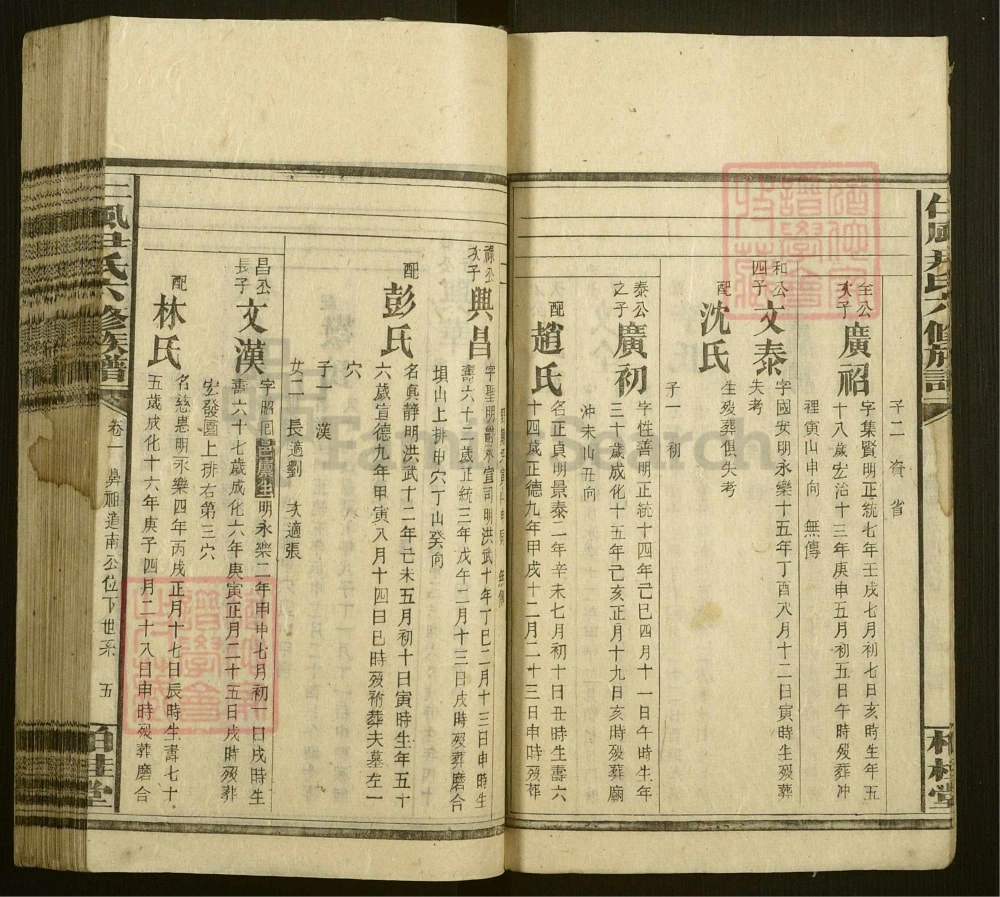 子二 資 省
全公次子 廣祒 字集賢明正統七年壬戌七月初七日亥時生年五
十八歲宏治十三年庚申五月初五日午時歿葬冲
裡寅山申向 無傳
和公四子 文泰 字國安明永樂十五年丁酉八月十二日寅時生歿葬
失考
配 沈氏 生歿葬俱失考
子一 初
泰公之子 廣初 字性善明正統十四年己巳四月十一日午時生年
三十歲成化十五年己亥正月十九日亥時歿葬廟
沖未山丑向
配 趙氏 名正貞明景泰二年辛未七月初十日丑時生壽六
十四歲正德九年甲戌十二月二十三日申時歿葬
柏桂堂
祿公次子 興昌 字聖明爵承宣司明洪武十年丁巳二月十三日申時生
壽六十二歲正統三年戊午二月十三日戌時歿葬磨合
垻山上排中穴丁山癸向
配 彭氏 名眞靜明洪武十二年己未五月初十日寅時生年五十
六歲宣德九年甲寅八月十四日巳時歿祔葬夫墓左一
穴
子一 漢
女二 長適劉 次適張
昌公長子 文漢 字昭回邑廩生明永樂二年甲申七月初一日戌時生
壽六十七歲成化六年庚寅正月二十五日戌時歿葬
宏發園上排右第三穴
配 林氏 名慈惠明永樂四年丙戌正月十七日辰時生壽七十
五歲成化十六年庚子四月二十八日申時歿葬磨合
仁風尹氏六修族譜 卷一 鼻祖道南公位下世系 五 柏桂堂
FamilySearch